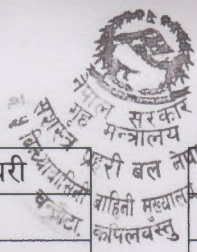 नेपाल सरकार
गृह मन्त्रालय
सशस्त्र प्रहरी बल नेपाल
बाहिनी मुख्यालय
कपिलवस्तु
परी